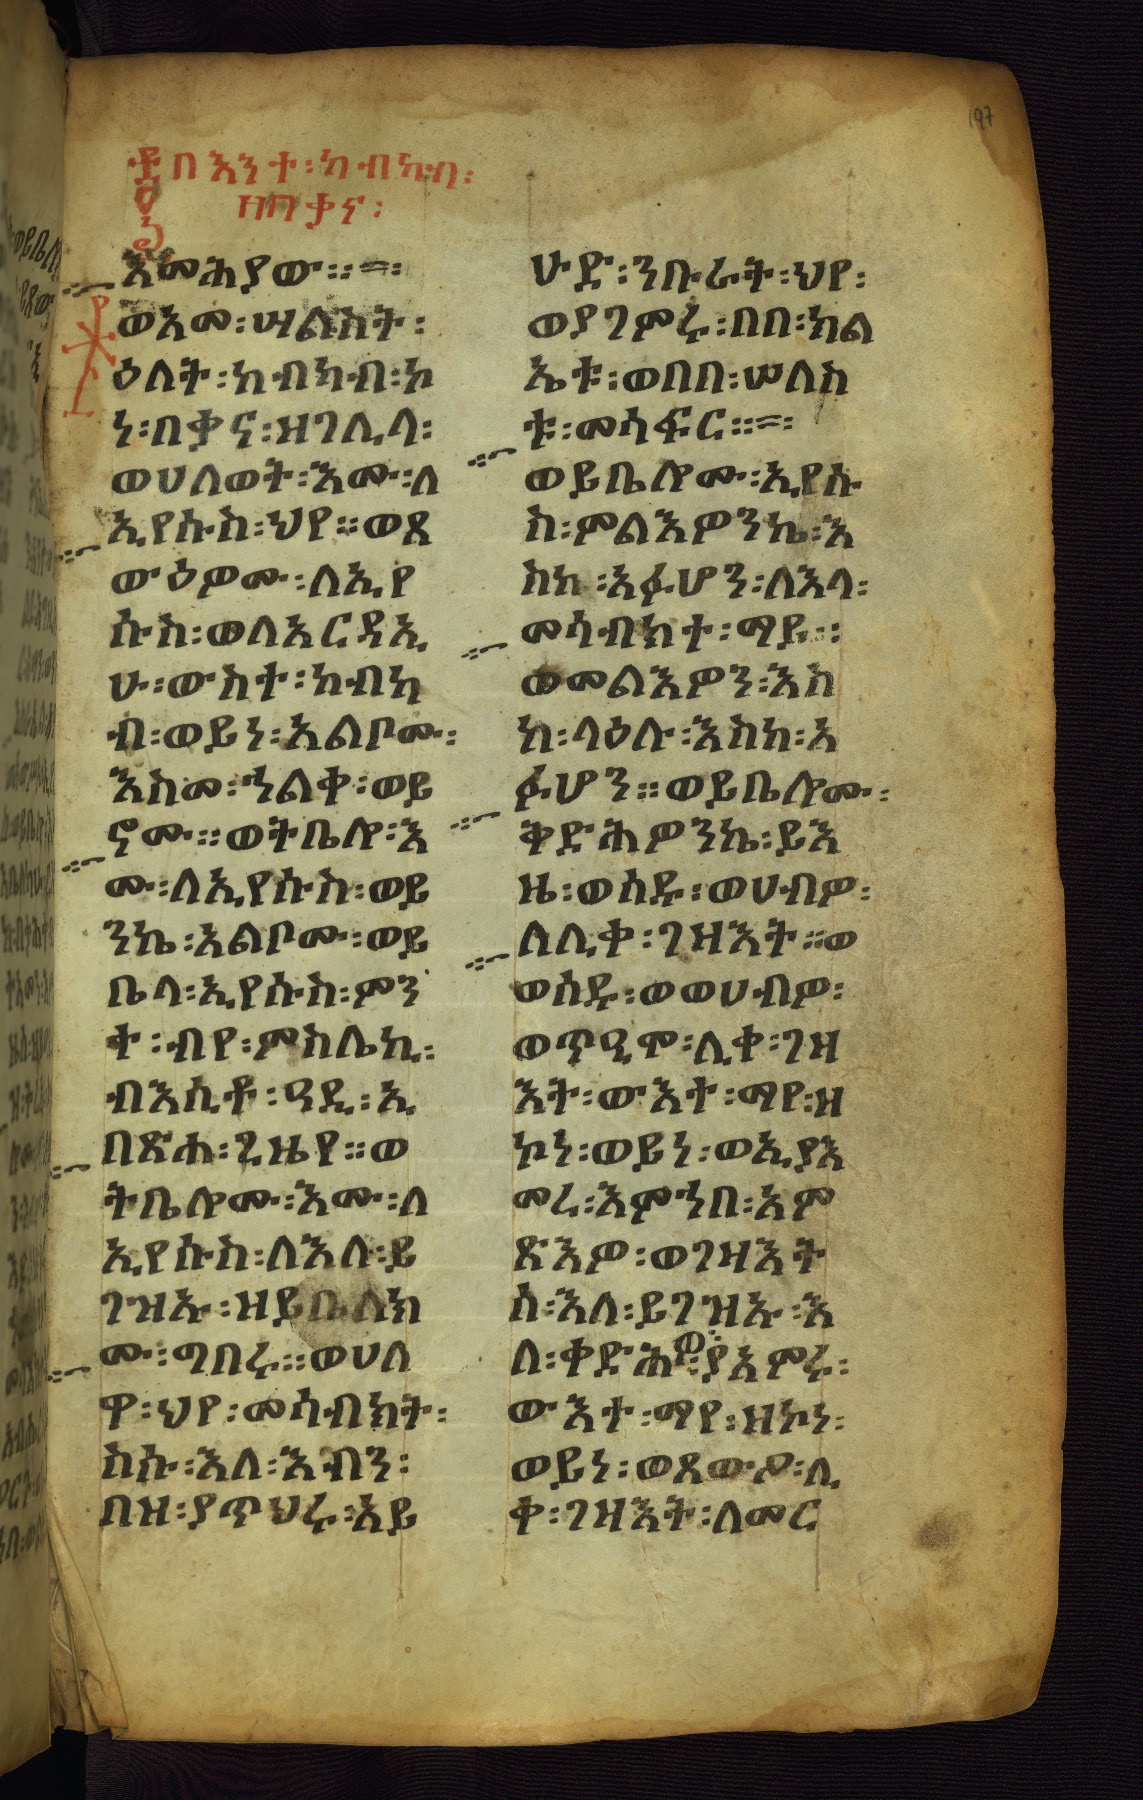 197
፩በእንተ፡ከብካብ፡
ዘበቃና፡
እመሕያው፡፡
ወአመ፡ሣልስት፡
ዕለት፡ከብካብ፡ኮ
ነ፡በቃና፡ዝገሊላ፡
ወሀለወት፡እሙ፡ለ
ኢየሱስ፡ህየ፡፡ወጸ
ውዕዎሙ፡ለኢየ
ሱስ፡ወለአርዳኢ
ሁ፡ውስተ፡ከብካ
ብ፡ወይነ፡አልቦሙ፡
እስመ፡ኀልቀ፡ወይ
ኖሙ፡፡ወትቤሎ፡እ
ሙ፡ለኢየሱስ፡ወይ
ንኬ፡አልቦሙ፡ወይ
ቤላ፡ኢየሱስ፡ምን
ት፡ብየ፡ምስሌኪ፡
ብእሲቶ፡ዓዲ፡ኢ
በጽሐ፡ጊዜየ፡፡ወ
ትቤሎሙ፡እሙ፡ለ
ኢየሱስ፡ለእለ፡ይ
ገዝኡ፡ዝይቤለክ
ሙ፡ግበሩ፡፡ወሀለ
ዋ፡ህየ፡መሳብክት፡
ስሱ፡እለ፡እብን፡
በዝ፡ያጥህሩ፡አይ
ሁድ፡ንቡራት፡ህየ፡
ወያገምሩ፡በበ፡ክል
ኤቱ፡ወበበ፡ሠለስ
ቱ፡መሳፍር፡፡
ወይቤሎሙ፡ኢየሱ
ስ፡ምልእዎንኬ፡እ
ስከ፡አፉሆን፡ለእላ፡
መሳብክተ፡ማይ፡፡
ወመልእዎን፡እስ
ከ፡ላዕሉ፡እስከ፡አ
ፉሆን፡፡ወይቤሎሙ፡
ቅድሕዎንኬ፡ይእ
ዜ፡ወስዱ፡ወሀብዎ፡
ለሊቀ፡ገዝእት፡፡ወ
ወስዱ፡ወወሀብዎ፡
ወጥዒሞ፡ሊቀ፡ገዝ
እት፡ውእተ፡ማየ፡ዘ
ኮነ፡ወይነ፡ወኢያእ
መረ፡እምኀበ፡አም
ጽእዎ፡ወገዛእት
ሰ፡እለ፡ይገዝኡ፡እ
ለ፡ቀድሕዎ፡ያአምሩ፡
ውእተ፡ማየ፡ዘኮነ፡
ወይነ፡ወጸውዖ፡ሊ
ቀ፡ገዝእት፡ለመር